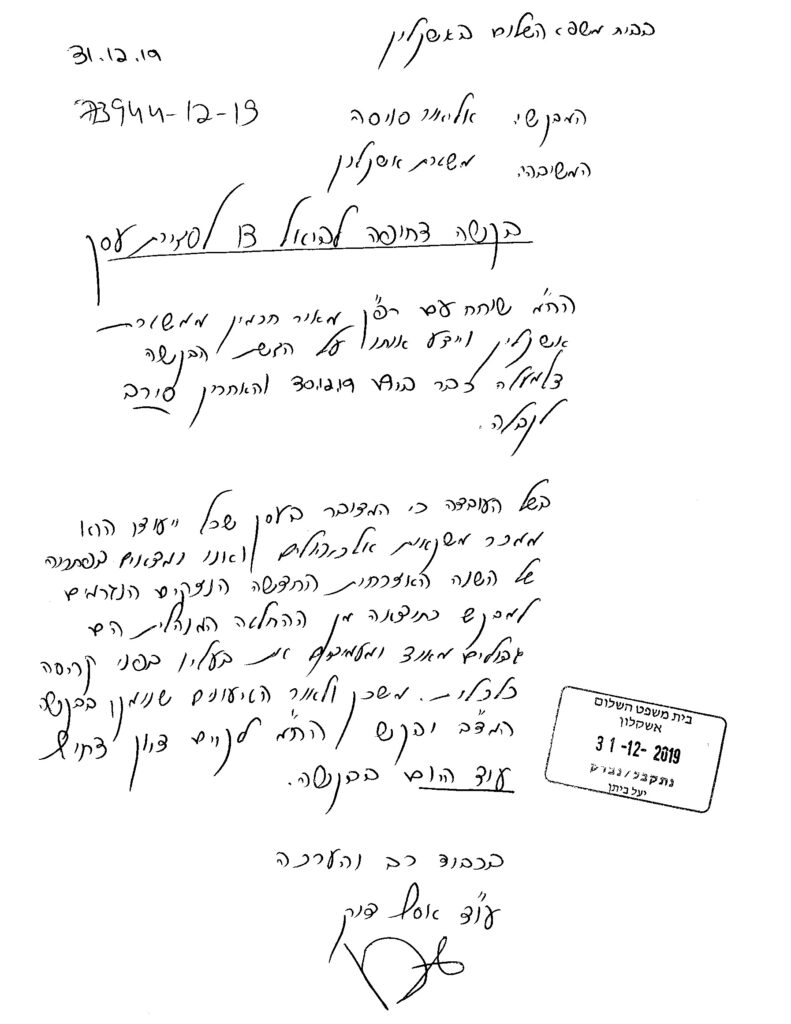 בבית משפט השלום באשקלון
31.12.19
73944-12-19
המבקש: אליאור סויסה
המשיבה: משטרת אשקלון
בקשה דחופה לביטול צו לסגירת עסק
הח"מ שוחח עם רפ"ק מאיר חכמון ממשטרת
אשקלון ויידע אותו על הגשת הבקשה
דלמעלה כבר ביום 30.12.19 והאחרון סירב
לקבלה.
בשל העובדה כי המדובר בעסק שכל ייעודו הוא
ממכר משקאות אלכוהולים ואנו נמצאים בפתחה
של השנה האזרחית החדשה הנזקים הנגרמים
למבקש כתוצאה מן ההחלטה המנהלית הם
גבוהים מאוד ומעמידים את בעליו בפני קריסה
כלכלית. משכך ולאור הטיעונים שנימקו בבקשה
המצ"ב יבקש הח"מ לקיים דיון דחוף
עוד היום בבקשה.
בית משפט השלום
אשקלון
31-12-2019
נתקבל/נבדק
יעל ביתן
בכבוד רב והערכה
עו"ד אסף דוק